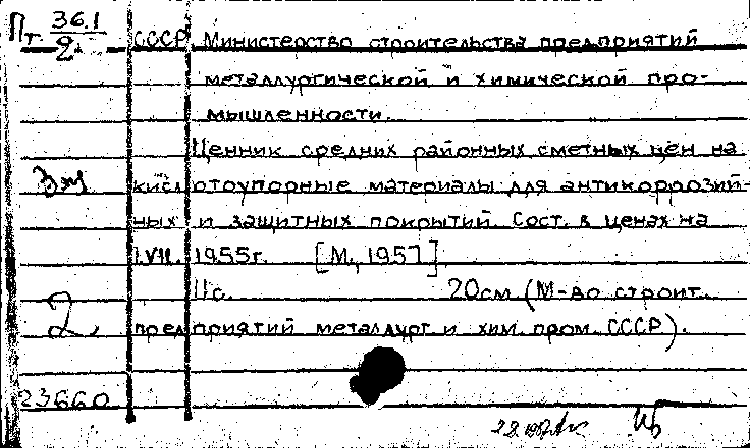 Пт 36.1
2
СССР Министерство строительства предприятий
металлургической и химической про-
мышленности.
Ценник средних районных сметных цен на
кислотоупорные материалы для антикоррозий-
ных и защитных покрытий. Сост. в ценах на
1.VII. 1955г. [М., 1957]
11с. 20см (М-во строит.
предприятий металлург. и хим. пром. СССР).
2
23660